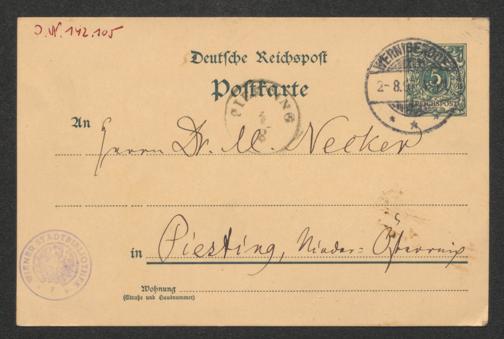 J.N. 142.105
Deutsche Reichspost
Postkarte
WERNIGERODE
2-8
5
REICHSPOST
PIESTING
An
Herrn Dr. M. Necker
WIENER STADTBIBLIOTHEK
in Piesting, Nieder-Österreich
Wohnung
(Straße und Hausnummer)